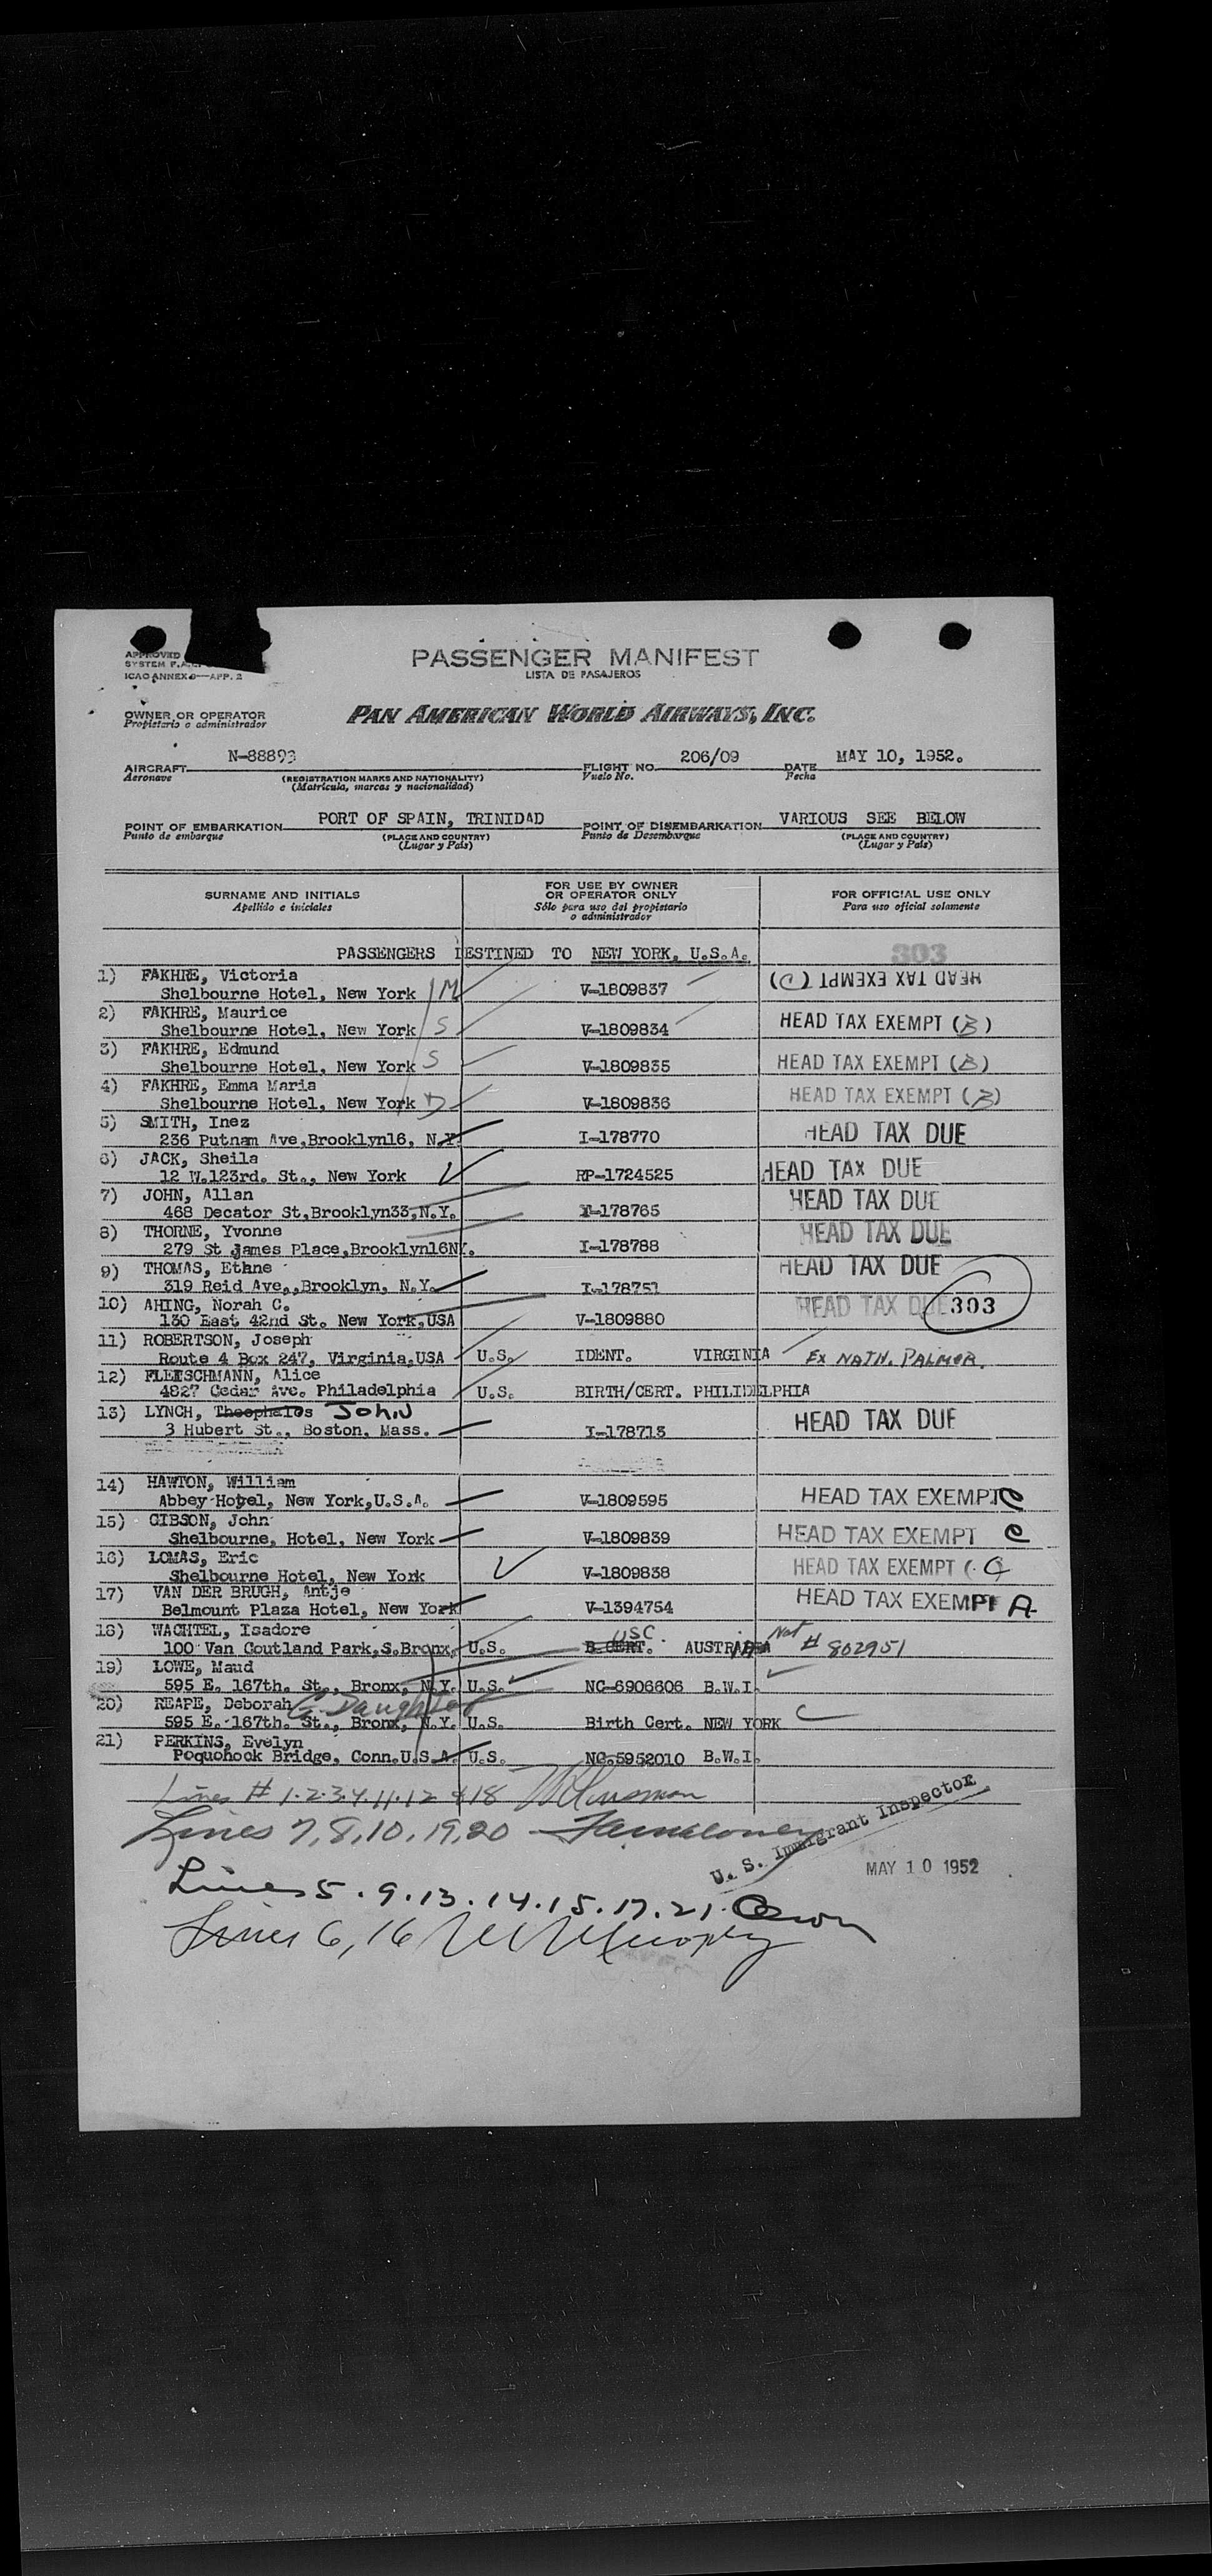 APPROVED
SYSTEM F.A.
ICAO ANNEX 9—APP. 2
PASSENGER MANIFEST
LISTA DE PASAJEROS
OWNER OR OPERATOR
Propietario o administrador
PAN AMERICAN WORLD AIRWAYS, INC.
AIRCRAFT N-88893 FLIGHT NO. 206/09 DATE MAY 10, 1952.
Aeronave (REGISTRATION MARKS AND NATIONALITY) Vuelo No. Fecha
(Matrícula, marcas y nacionalidad)
POINT OF EMBARKATION PORT OF SPAIN, TRINIDAD POINT OF DISEMBARKATION VARIOUS SEE BELOW
Punto de embarque (PLACE AND COUNTRY) Punto de Desembarque (PLACE AND COUNTRY)
(Lugar y País) (Lugar y País)
SURNAME AND INITIALS FOR USE BY OWNER OR OPERATOR ONLY FOR OFFICIAL USE ONLY
Apellido e iniciales Sólo para uso del propietario o administrador Para uso oficial solamente
PASSENGERS DESTINED TO NEW YORK, U.S.A. 303
1) FAKHRE, Victoria
Shelbourne Hotel, New York M V-1809837 HEAD TAX EXEMPT (C)
2) FAKHRE, Maurice
Shelbourne Hotel, New York S V-1809834 HEAD TAX EXEMPT (B)
3) FAKHRE, Edmund
Shelbourne Hotel, New York S V-1809835 HEAD TAX EXEMPT (B)
4) FAKHRE, Emma Maria
Shelbourne Hotel, New York D V-1809836 HEAD TAX EXEMPT (B)
5) SMITH, Inez
236 Putnam Ave,Brooklyn16, N.Y. I-178770 HEAD TAX DUE
6) JACK, Sheila
12 W.123rd. St., New York RP-1724525 HEAD TAX DUE
7) JOHN, Allan
468 Decator St,Brooklyn33,N.Y. I-178765 HEAD TAX DUE
8) THORNE, Yvonne
279 St James Place,Brooklyn16NY. I-178788 HEAD TAX DUE
9) THOMAS, Ethne
319 Reid Ave,,Brooklyn, N.Y. I-178751 HEAD TAX DUE
10) AHING, Norah C.
130 East 42nd St. New York,USA V-1809880 HEAD TAX DUE 303
11) ROBERTSON, Joseph
Route 4 Box 247, Virginia,USA U.S. IDENT. VIRGINIA EX NATH. PALMER.
12) FLEISCHMANN, Alice
4827 Cedar Ave. Philadelphia U.S. BIRTH/CERT. PHILIDELPHIA
13) LYNCH, Theophalos John
3 Hubert St., Boston, Mass. I-178713 HEAD TAX DUE
14) HAWTON, William
Abbey Hotel, New York,U.S.A. V-1809595 HEAD TAX EXEMPT C
15) GIBSON, John
Shelbourne, Hotel, New York V-1809839 HEAD TAX EXEMPT C
16) LOMAS, Eric
Shelbourne Hotel, New York V-1809838 HEAD TAX EXEMPT (C
17) VAN DER BRUGH, Antje
Belmount Plaza Hotel, New York V-1394754 HEAD TAX EXEMPT A
18) WACHTEL, Isadore
100 Van Coutland Park,S.Bronx, U.S. B CERT. USC. Nat # 802951
19) LOWE, Maud
595 E. 167th. St., Bronx, N.Y. U.S. NC-6906606 B.W.I.
20) REAPE, Deborah G. Daughter
595 E. 167th. St., Bronx, N.Y. U.S. Birth Cert. NEW YORK
21) PERKINS, Evelyn
Poquonock Bridge, Conn.U.S.A. U.S. NC.5952010 B.W.I.
Lines # 1.2.3.4.11.12 & 18
Lines 7,8,10,19,20
U. S. Immigrant Inspector
MAY 10 1952
Lines 5.9.13.14.15.17.21.
Lines 6,16